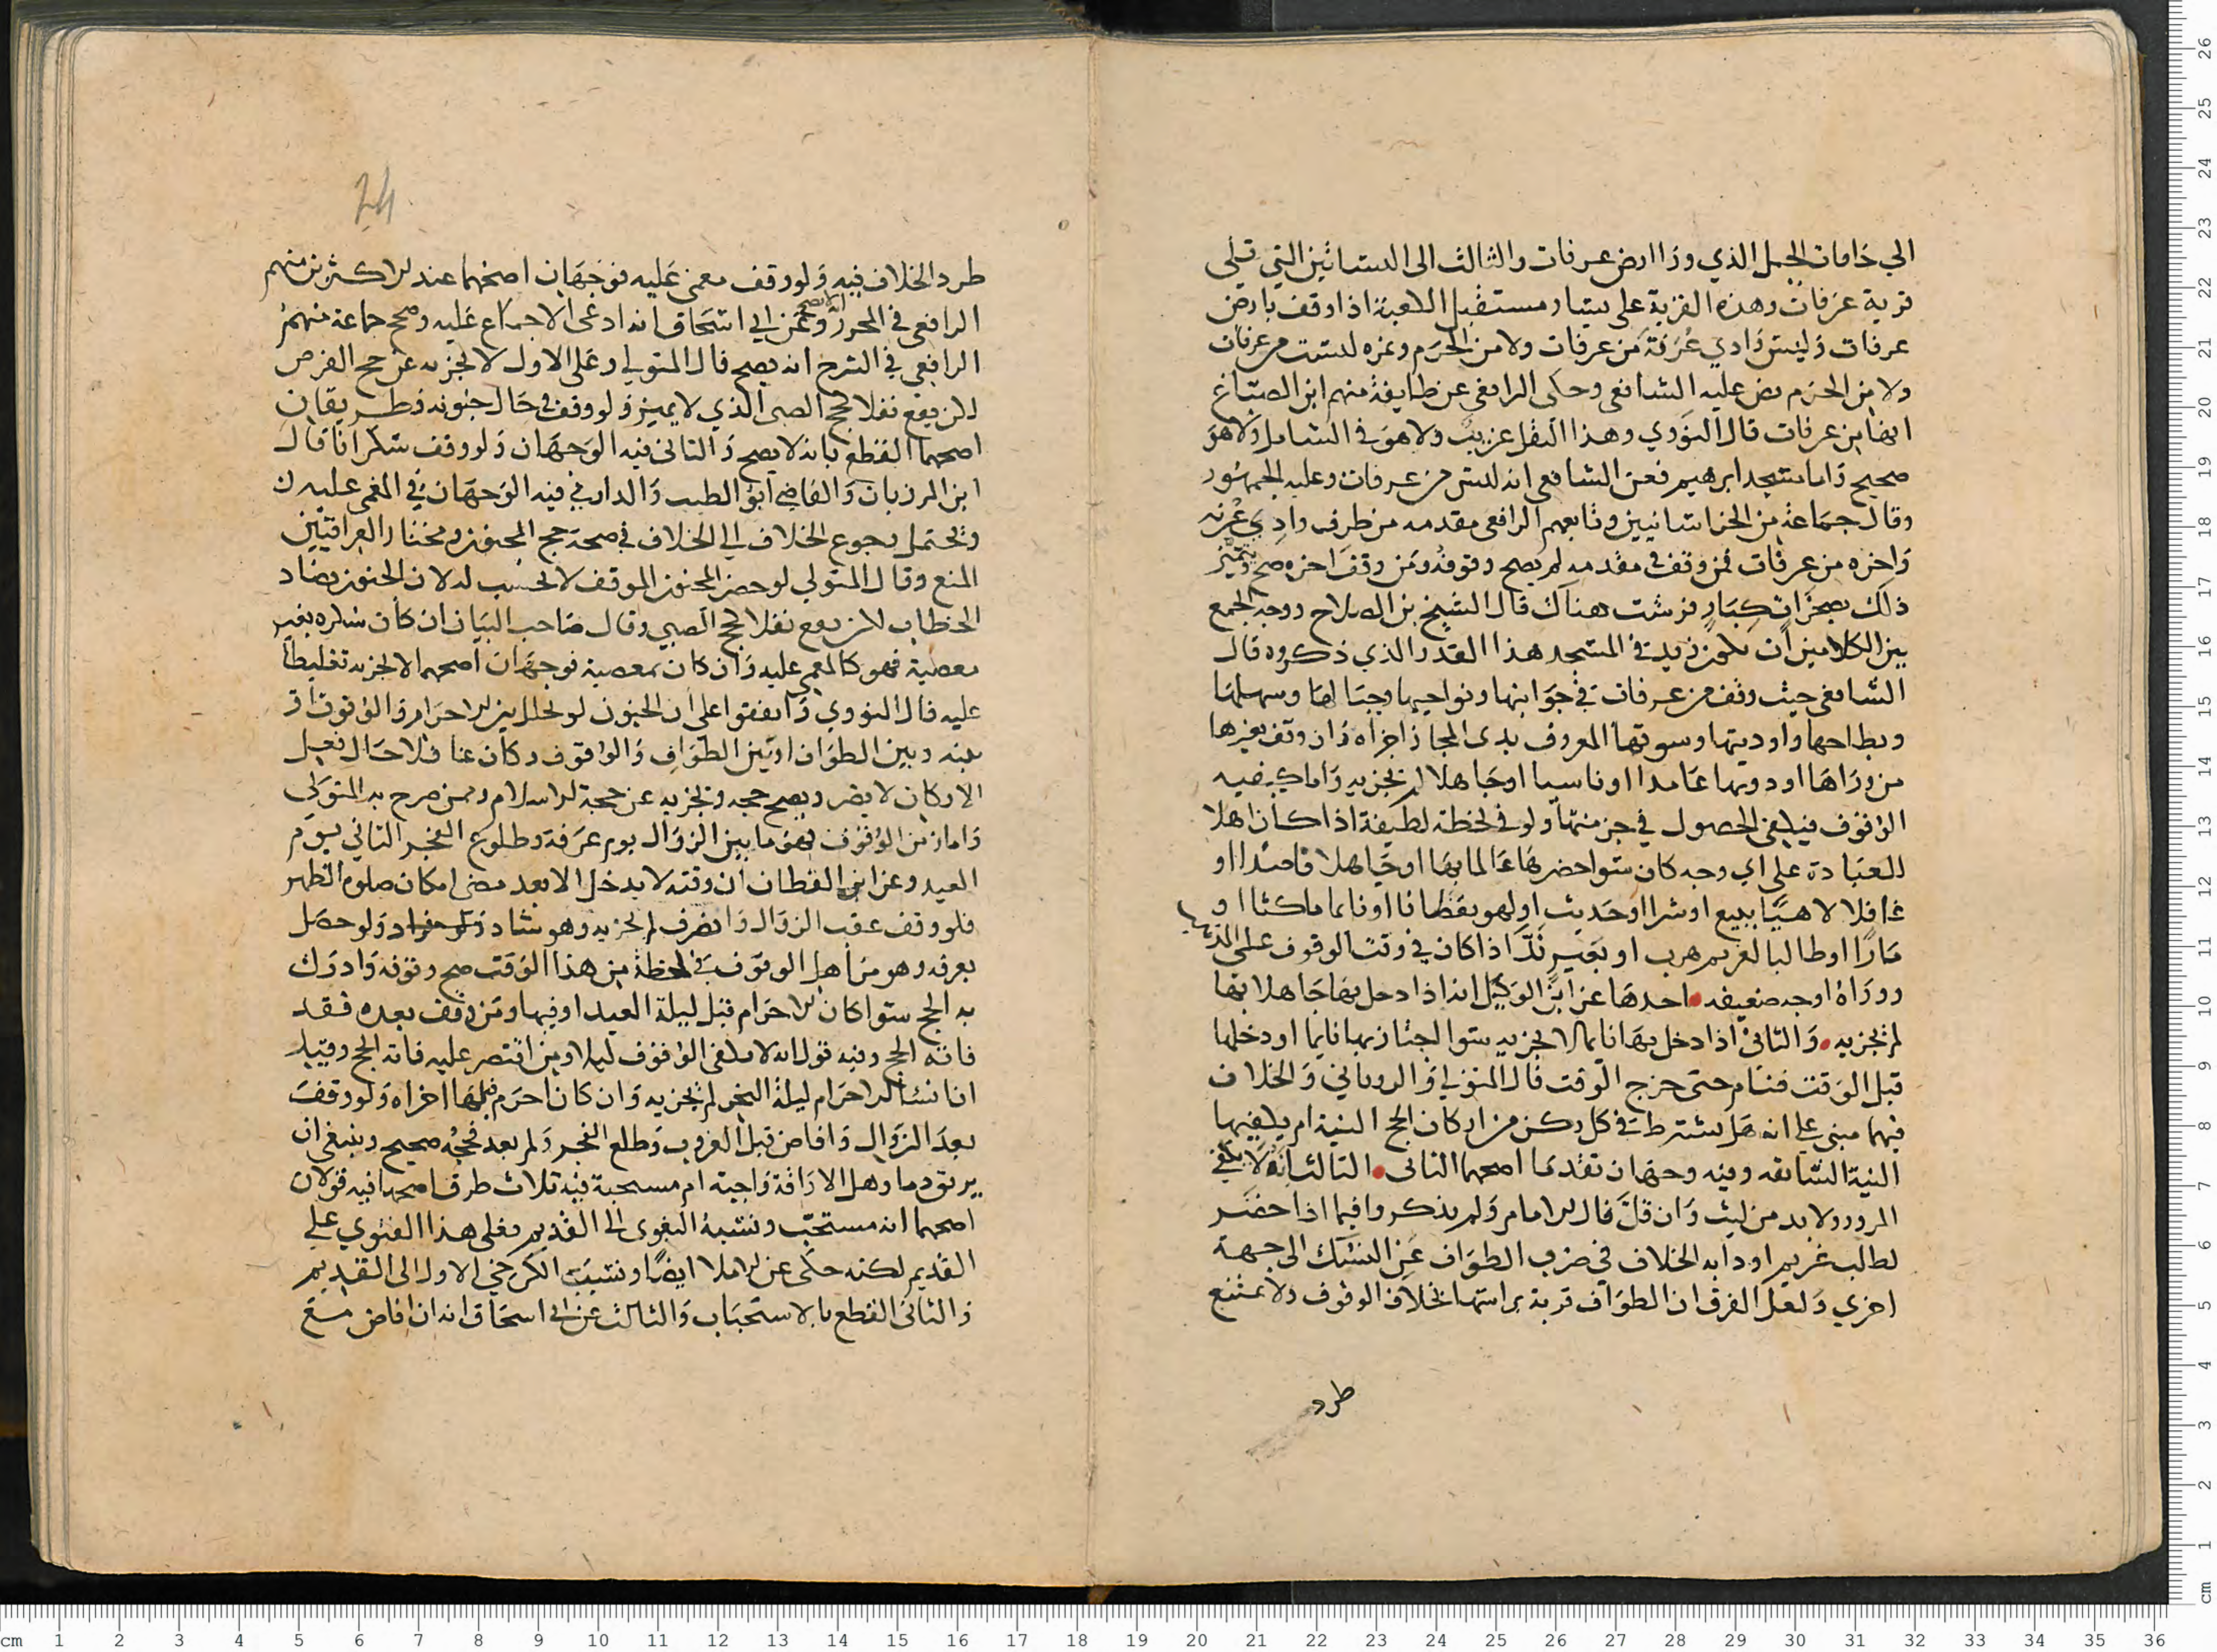 الي حافات الجبل الذي ورا ارض عرفات والثالث الى البساتين التي تلي
قرية عرفات وهذه القرية على يسار مستقبل الكعبة اذا وقف بارض
عرفات وليس وادي عرنة من عرفات ولا من الحرم ونمره ليست من عرفات
ولا من الحرم نص عليه الشافعي وحكى الرافعي عن طايفة منهم ابن الصباغ
انها من عرفات قال النووي وهذا النقل غريب ولا هو في الشامل ولا هو
صحيح واما مسجد ابرهيم فعن الشافعي انه ليس من عرفات وعليه الجمهور
وقال جماعة من الخراسانيين وتابعهم الرافعي مقدمه من طرف وادي عرنه
واخره من عرفات فمن وقف في مقدمه لم يصح وقوفه ومن وقف اخره صح ويتميز
ذلك بصخرات كبار فرشت هناك قال الشيخ بن الصلاح ووجه الجمع
بين الكلامين ان يكون زيد في المسجد هذا القدر الذي ذكروه قال
الشافعي حيث وقف من عرفات في جوانبها ونواحيها وجبالها وسهلها
وبطاحها واوديتها وسوقها المعروف بذى المجاز اجزاه وان وقف بغيرها
من وراها او دونها عامدا او ناسيا او جاهلا لم يجزيه واما كيفيه
الوقوف فيكفي الحصول في جز منها ولو في لحظة لطيفة اذا كان اهلا
للعبادة على اي وجه كان سوا حضرها عالما بها او جاهلا قاصدا او
غافلا لاهيا ببيع او شرا او حديث او لهو يقظانا او نايما ماكثا او
مارا او طالبا لغريم هرب او بعير ند اذا كان في وقت الوقوف على المذهب
ووراه اوجه ضعيفه احدها عن ابن الوكيل انه اذا دخل بها جاهلا بها
لم يجزيه والثاني اذا دخل بها نايما لا يجزيه سوا اجتاز بها نايما او دخلها
قبل الوقت فنام حتى خرج الوقت قال المتولي والروياني والخلاف
فيهما مبني على انه هل يشترط في كل ركن من اركان الحج النية ام يكفيها
النية السابقه وفيه وجهان تقدما اصحهما الثاني الثالث انه لا يكفي
المرور ولا بد من لبث وان قل قال الامام ولم يذكروا فيما اذا حضر
لطالب غريم او دابه الخلاف في صرف الطواف عن النسك الى جهة
اخري ولعل الفرق ان الطواف قربة براسها بخلاف الوقوف ولا يمتنع
طرد
24
طرد الخلاف فيه ولو وقف مغمى عليه فوجهان اصحهما عند الاكثرين منهم
الرافعي في المحرر لا يصح وعن ابي اسحاق انه ادعى الاجماع عليه وصحح جماعة منهم
الرافعي في الشرح انه يصح قال المتولي وعلى الاول لا يجزيه عن حج الفرض
لكن يقع نفلا كحج الصبي الذي لا يميز ولو وقف في حال جنونه فطريقان
اصحهما القطع بانه لا يصح والثاني فيه الوجهان ولو وقف سكرانا قال
ابن المرزبان والقاضي ابو الطيب والدارمي فيه الوجهان في المغمى عليه
ويحتمل رجوع الخلاف الي الخلاف في صحة حج المجنون ومختار العراقيين
المنع وقال المتولي لو حضر المجنون الموقف لا يحتسب له لان الجنون يضاد
الخطاب لكن يقع نفلا كحج الصبي وقال صاحب البيان ان كان سكره بغير
معصية فهو كالمغمى عليه وان كان بمعصية فوجهان اصحهما لا يجزيه تغليظا
عليه قال النووي واتفقوا على ان الجنون لو تخلل بين الاحرام والوقوف او
بينه وبين الطواف او بين الطواف والوقوف وكان عاقلا حال فعل
الاركان لا يضر ويصح حجه ويجزيه عن حجة الاسلام وممن صرح به المتولي
واما زمن الوقوف فهو ما بين الزوال يوم عرفة وطلوع الفجر الثاني يوم
العيد وعن ابن القطان ان وقته لا يدخل الا بعد مضى امكان صلوة الظهر
فلو وقف عقب الزوال وانصرف لم يجزيه وهو شاذ ولو حصل
بعرفه وهو من اهل الوقوف في لحظة من هذا الوقت صح وقوفه وادرك
به الحج سوا كان الاحرام قبل ليلة العيد او فيها ومن وقف بعده فقد
فاته الحج وفيه قول انه لا يكفى الوقوف ليلا ومن اقتصر عليه فاته الحج وقيل
ان انشا الاحرام ليلة النحر لم يجزيه وان كان احرم قبلها اجزاه ولو وقف
بعد الزوال وافاض قبل الغروب وطلع الفجر ولم يعد فحجه صحيح وينبغي ان
يريق دما وهل الاراقة واجبة ام مستحبة فيه ثلاث طرق اصحها فيه قولان
اصحهما انه مستحب ونسبة البغوى الى القديم فعلى هذا الفتوي علي
القديم لكنه حكى عن الاملا ايضا ونسبت الكرخي الاول الى القديم
والثاني القطع بالاستحباب والثالث عن ابي اسحاق انه ان افاض مع